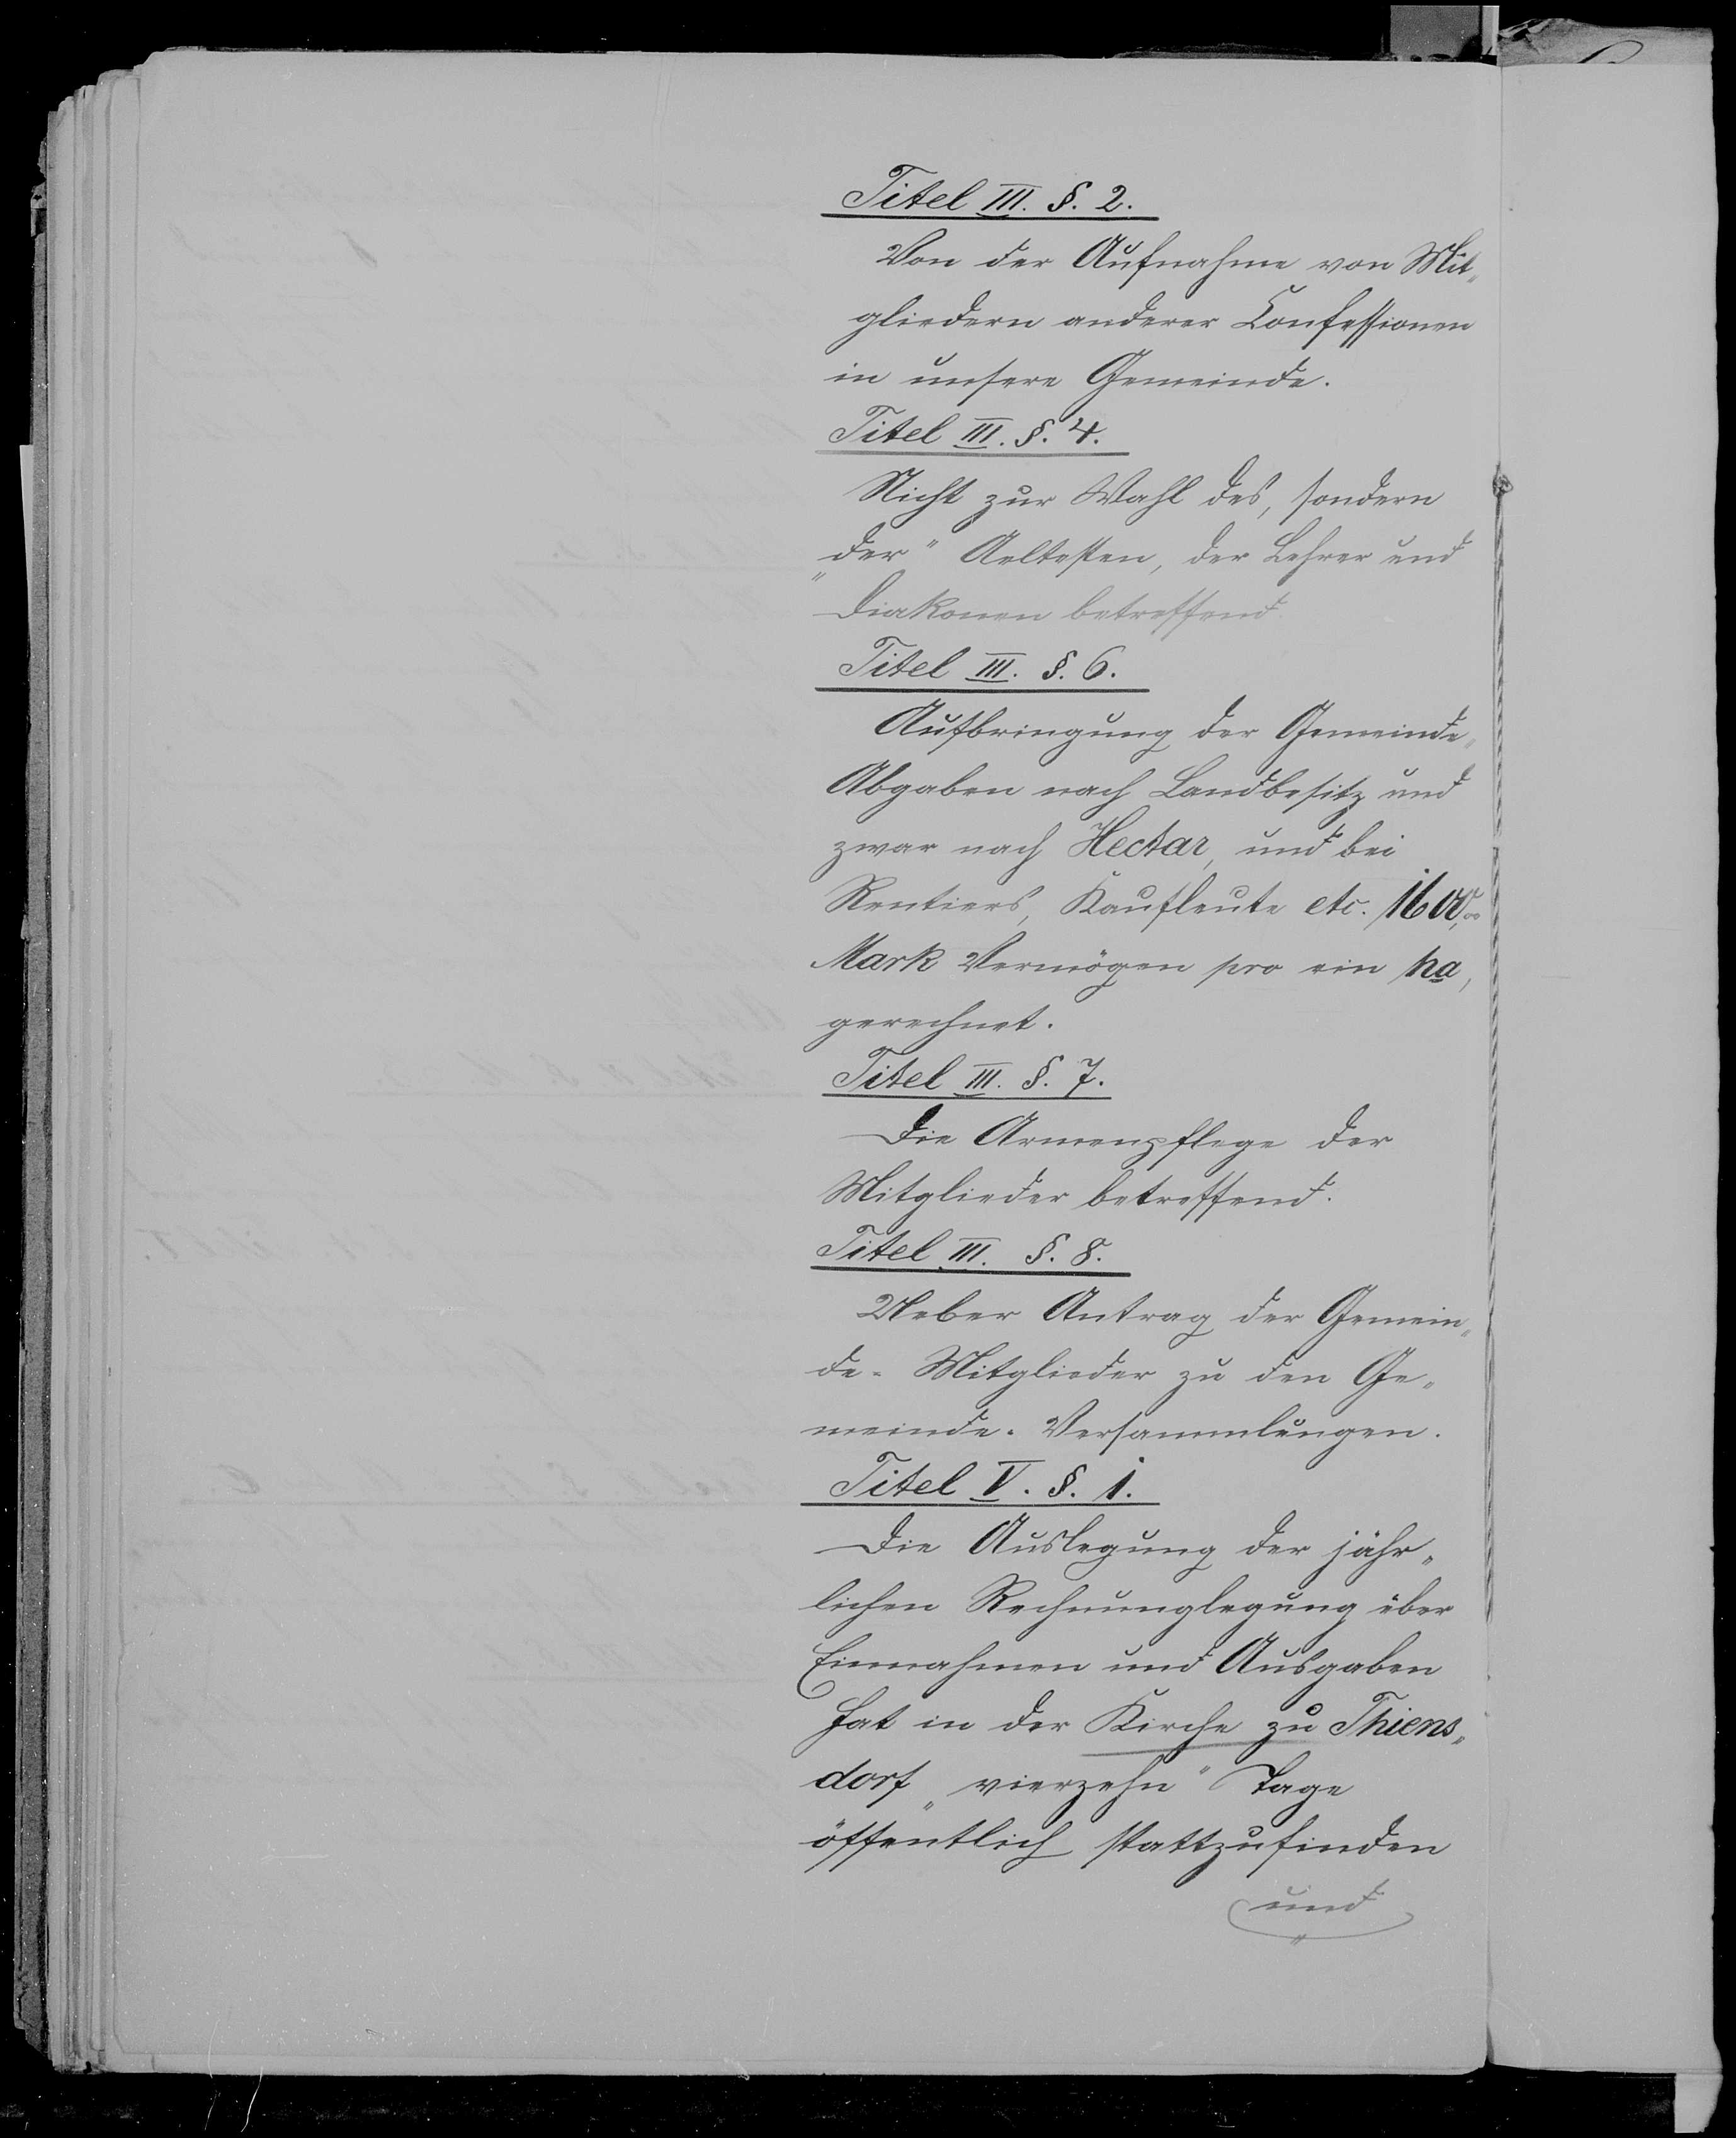 Titel III. §. 2.
Von der Aufnahme von Mit„
gliedern anderer Confessionen
in unsere Gemeinde.
Titel III. §. 4.
Nicht zur Wahl des, sondern
„der“ Aeltesten, der Lehrer und
Diakonen betreffend.
Titel III. §. 6.
Aufbringung der Gemeinde„
Abgaben nach Landbesitz und
zwar nach Hectar, und bei
Rentiers, Kaufleute etc. 1600,00
Mark Vermögen pro ein ha,
gerechnet.
Titel III. §. 7.
Die Armenpflege der
Mitglieder betreffend.
Titel III. §. 8.
Ueber Antrag der Gemein„
de- Mitglieder zu den Ge„
meinde- Versammlungen.
Titel V. §. 1.
Die Auslegung der jähr„
lichen Rechnunglegung über
Einnahmen und Ausgaben
hat in der Kirche zu Thiens„
dorf „vierzehn“ Tage
öffentlich stattzufinden
und